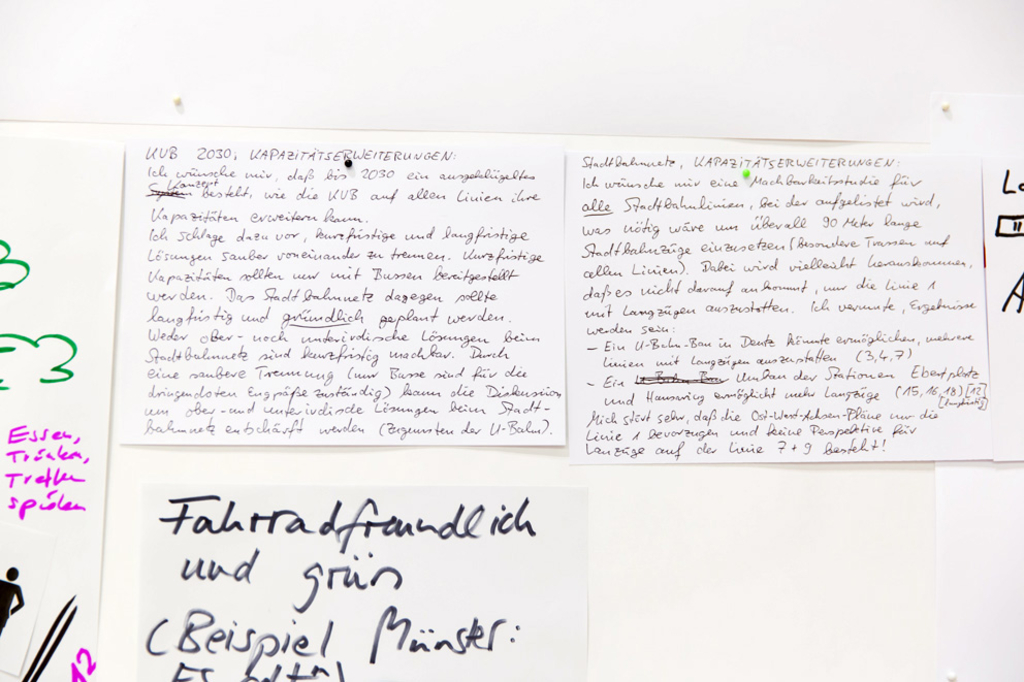 KVB 2030, KAPAZITÄTSERWEITERUNGEN:
Ich wünsche mir, daß bis 2030 ein ausgeklügeltes
Konzept
besteht, wie die KVB auf allen Linien ihre
Kapazitäten erweitern kann.
Ich schlage dazu vor, kurzfristige und langfristige
Lösungen sauber voneinander zu trennen. Kurzfristige
Kapazitäten sollten nur mit Bussen bereitgestellt
werden. Das Stadtbahnnetz dagegen sollte
langfristig und gründlich geplant werden.
Weder ober- noch unterirdische Lösungen beim
Stadtbahnnetz sind kurzfristig machbar. Durch
eine saubere Trennung (nur Busse sind für die
dringendsten Engpäße zuständig) kann die Diskussion
um ober- und unterirdische Lösungen beim Stadt-
bahnnetz entschärft werden (zugunsten der U-Bahn).
Stadtbahnnetz, KAPAZITÄTSERWEITERUNGEN:
Ich wünsche mir eine Machbarkeitsstudie für
alle Stadtbahnlinien, bei der aufgelistet wird,
was nötig wäre um überall 90 Meter lange
Stadtbahnzüge einzusetzen (besondere Trassen auf
allen Linien). Dabei wird vielleicht herauskommen,
daß es nicht darauf ankommt, nur die Linie 1
mit Langzügen auszustatten. Ich vermute, Ergebnisse
werden sein:
- Ein U-Bahn-Bau in Deutz könnte ermöglichen, mehrere
Linien mit Langzügen auszustatten (3,4,7)
- Ein Umbau der Stationen Ebertplatz
und Hansaring ermöglicht mehr Langzüge (15,16,18) [12]
[langfristig]
Mich stört sehr, daß die Ost-West-Achsen-Pläne nur die
Linie 1 bevorzugen und keine Perspektive für
Lanzüge auf der Linie 7+9 besteht!
Essen,
Trinken,
Treffen
spielen
Fahrradfreundlich
und grün
(Beispiel Münster: